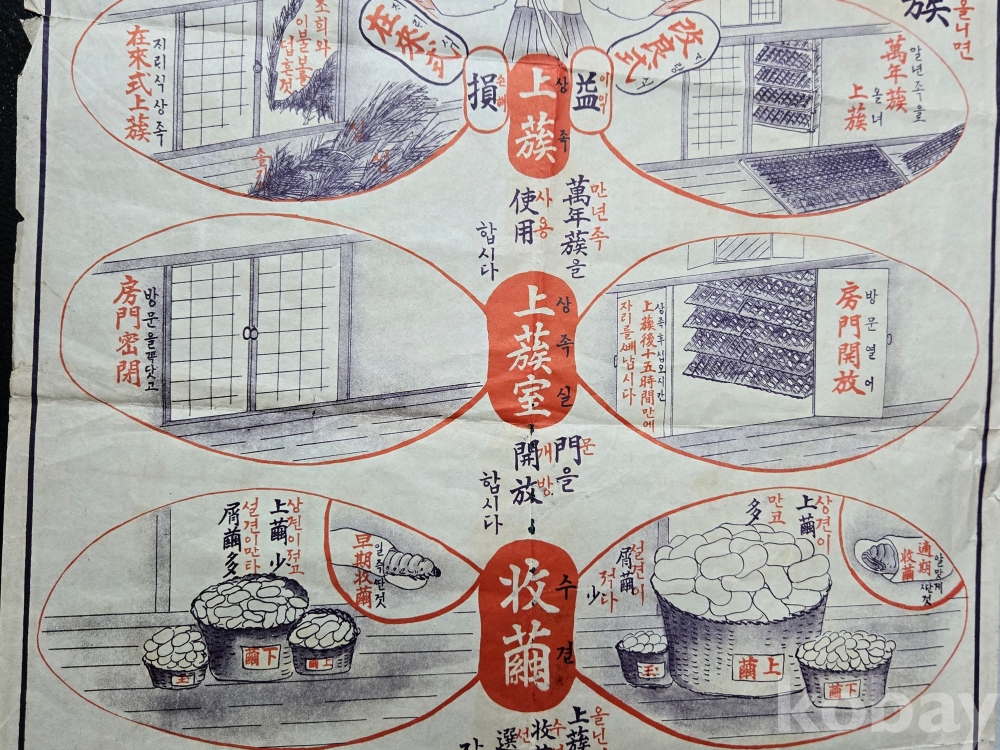 在來式
지래식
改良式
損
손해
益
이익
上蔟
상족
在來式上蔟
지리식상족
조희와
이불보를
萬年蔟
만년족을
올녀
上蔟
蔟
올니면
萬年蔟을
만년족
使用
사용
합시다
上蔟室
상족실
門을
문
開放
개방
합시다
房門密閉
방문을꽉닷고
房門開放
방문열어
상족후십오시간
上蔟後十五時間만에
자리를쌔납시다
收繭
수견
上繭少
상견이적고
屑繭多
설견이만타
早期收繭
일즉싼것
下繭
上繭
玉
上繭
상견이
多
만코
屑繭
설견이
少
적다
適期收繭
알맛게
싼것
玉
上繭
下繭
올닌
上蔟
수
收
선
選
kobay